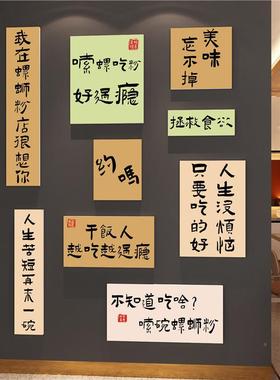 我在螺蛳粉店很想你
嗦螺吃粉
好过瘾
美味
忘不掉
拯救食欲
约嗎
人生没煩惱
只要吃的好
干飯人
越吃越过瘾
人生苦短再来一碗
不知道吃啥?
嗦碗螺蛳粉